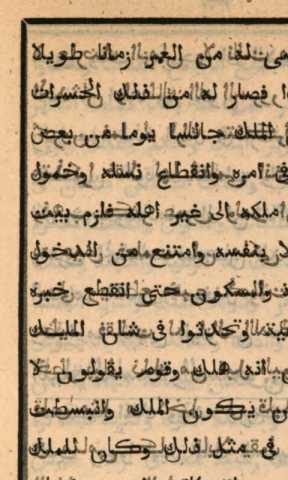 له من العمر ازمانا طويلا
فصارا له من تلك الحسرات
الملك جالسا يوما من بعض
فى امره وانقطاع نسله وخمول
ملكه الى غير اهله فلزم بيت
بنفسه وامتنع من الدخول
والسكون حتى انقطع خبره
وتحدثوا فى شان الملك
انه هلك وقوم يقولون لا
يكون الملك وانبسطت
فى مثل ذلك وكان للملك